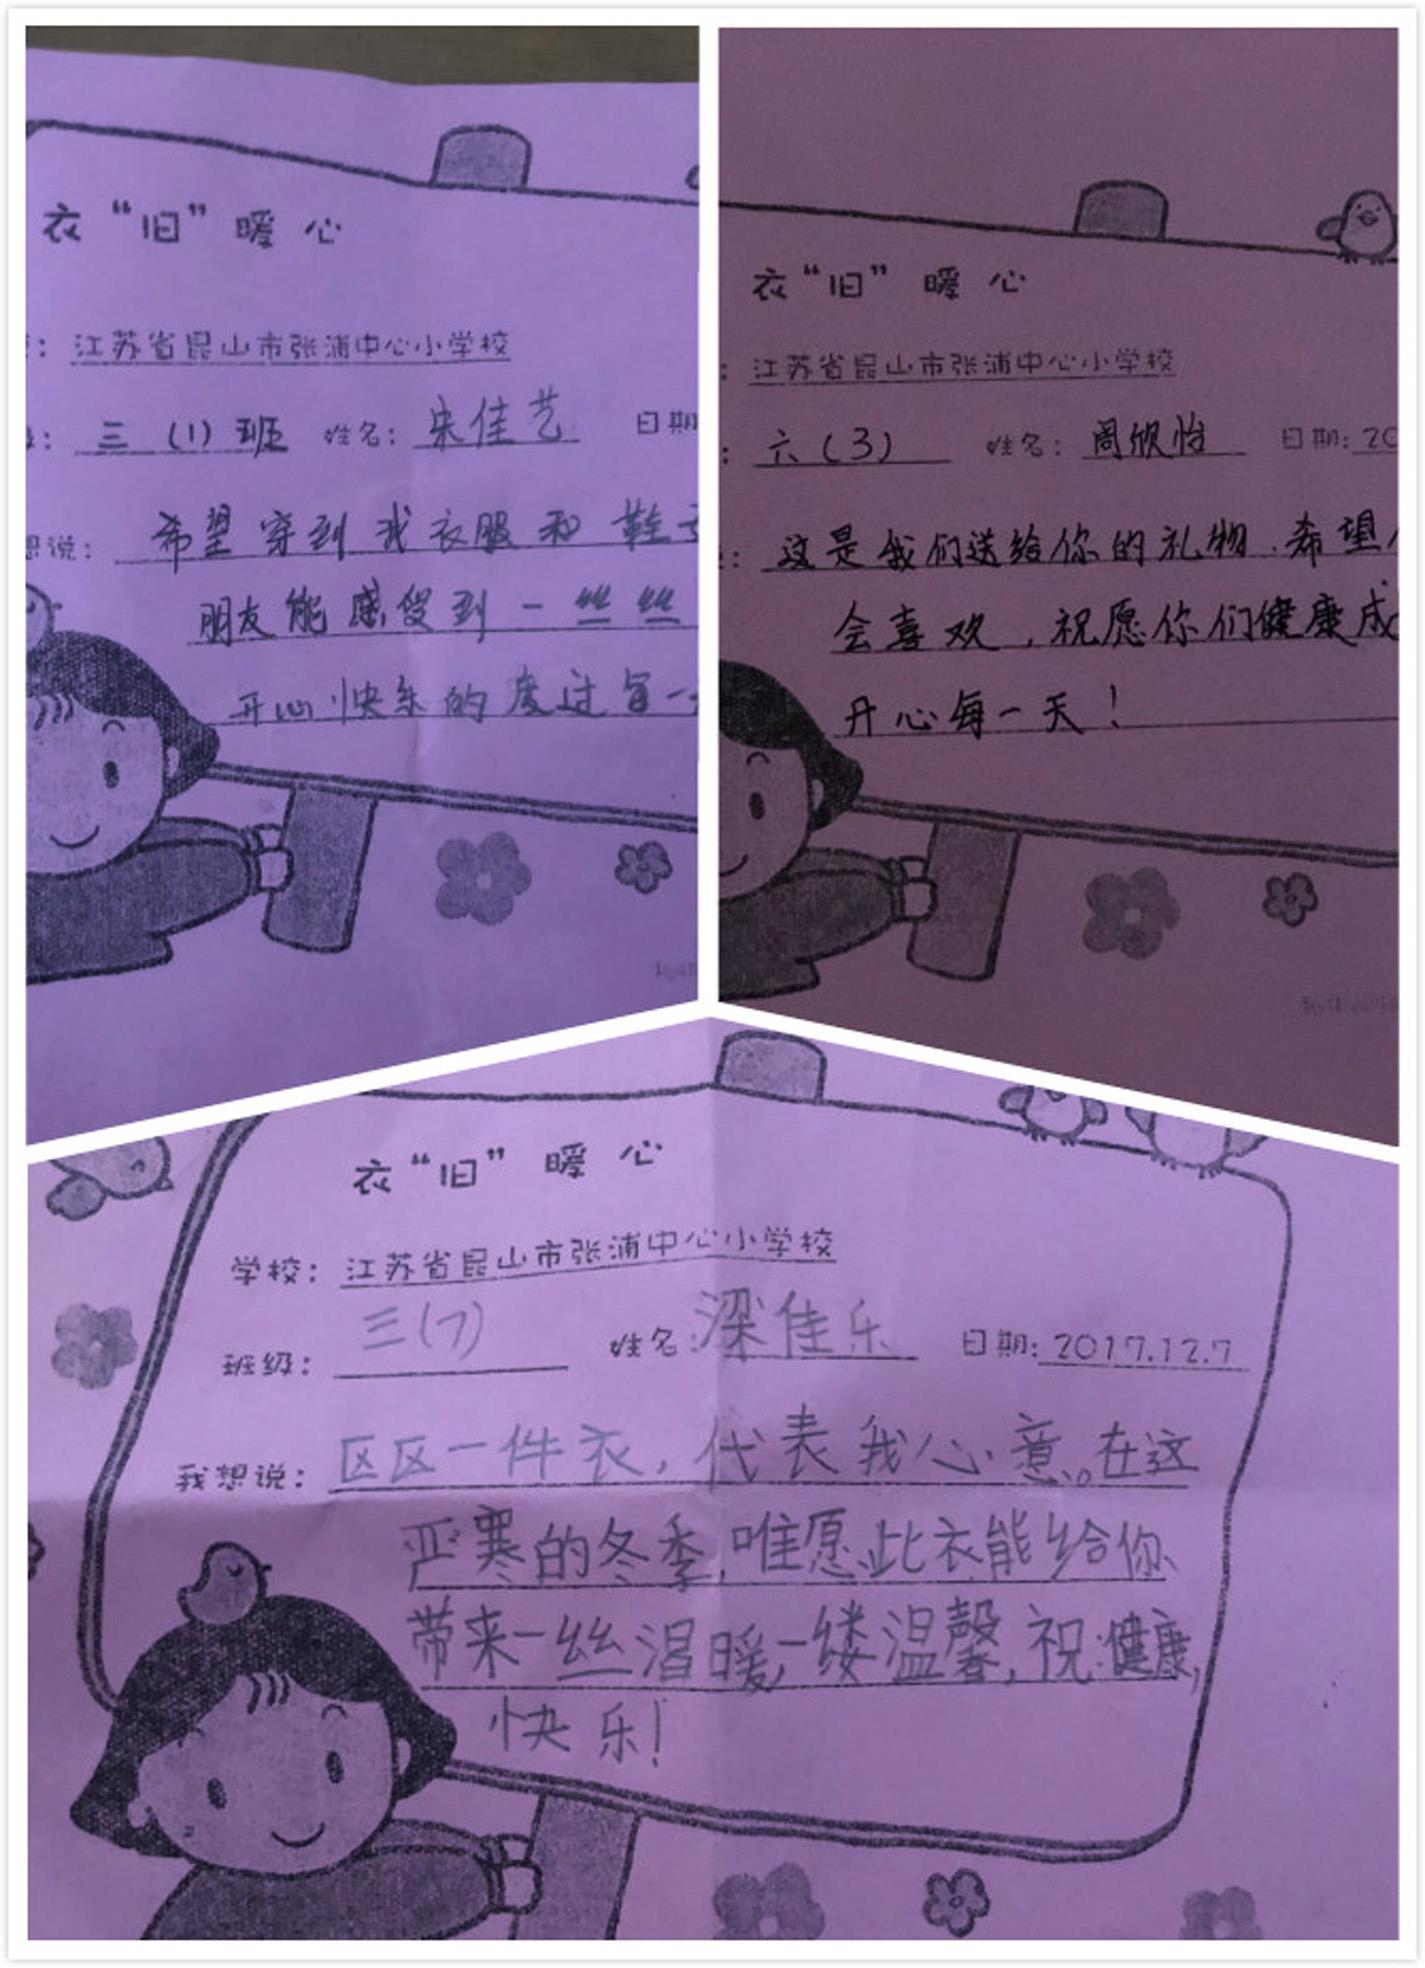 衣“旧”暖心
：江苏省昆山市张浦中心小学校
：三（1）班 姓名：宋佳艺 日期
想说：希望穿到我衣服和鞋子
朋友能感受到一丝丝
开心快乐的度过每一天
衣“旧”暖心
：江苏省昆山市张浦中心小学校
：六（3） 姓名：周欣怡 日期：20
：这是我们送给你的礼物.希望
会喜欢，祝愿你们健康成
开心每一天！
衣“旧”暖心
学校：江苏省昆山市张浦中心小学校
班级：三（7） 姓名：梁佳乐 日期：2017.12.7
我想说：区区一件衣，代表我心意。在这
严寒的冬季，唯愿此衣能给你
带来一丝温暖，一缕温馨，祝：健康，
快乐！